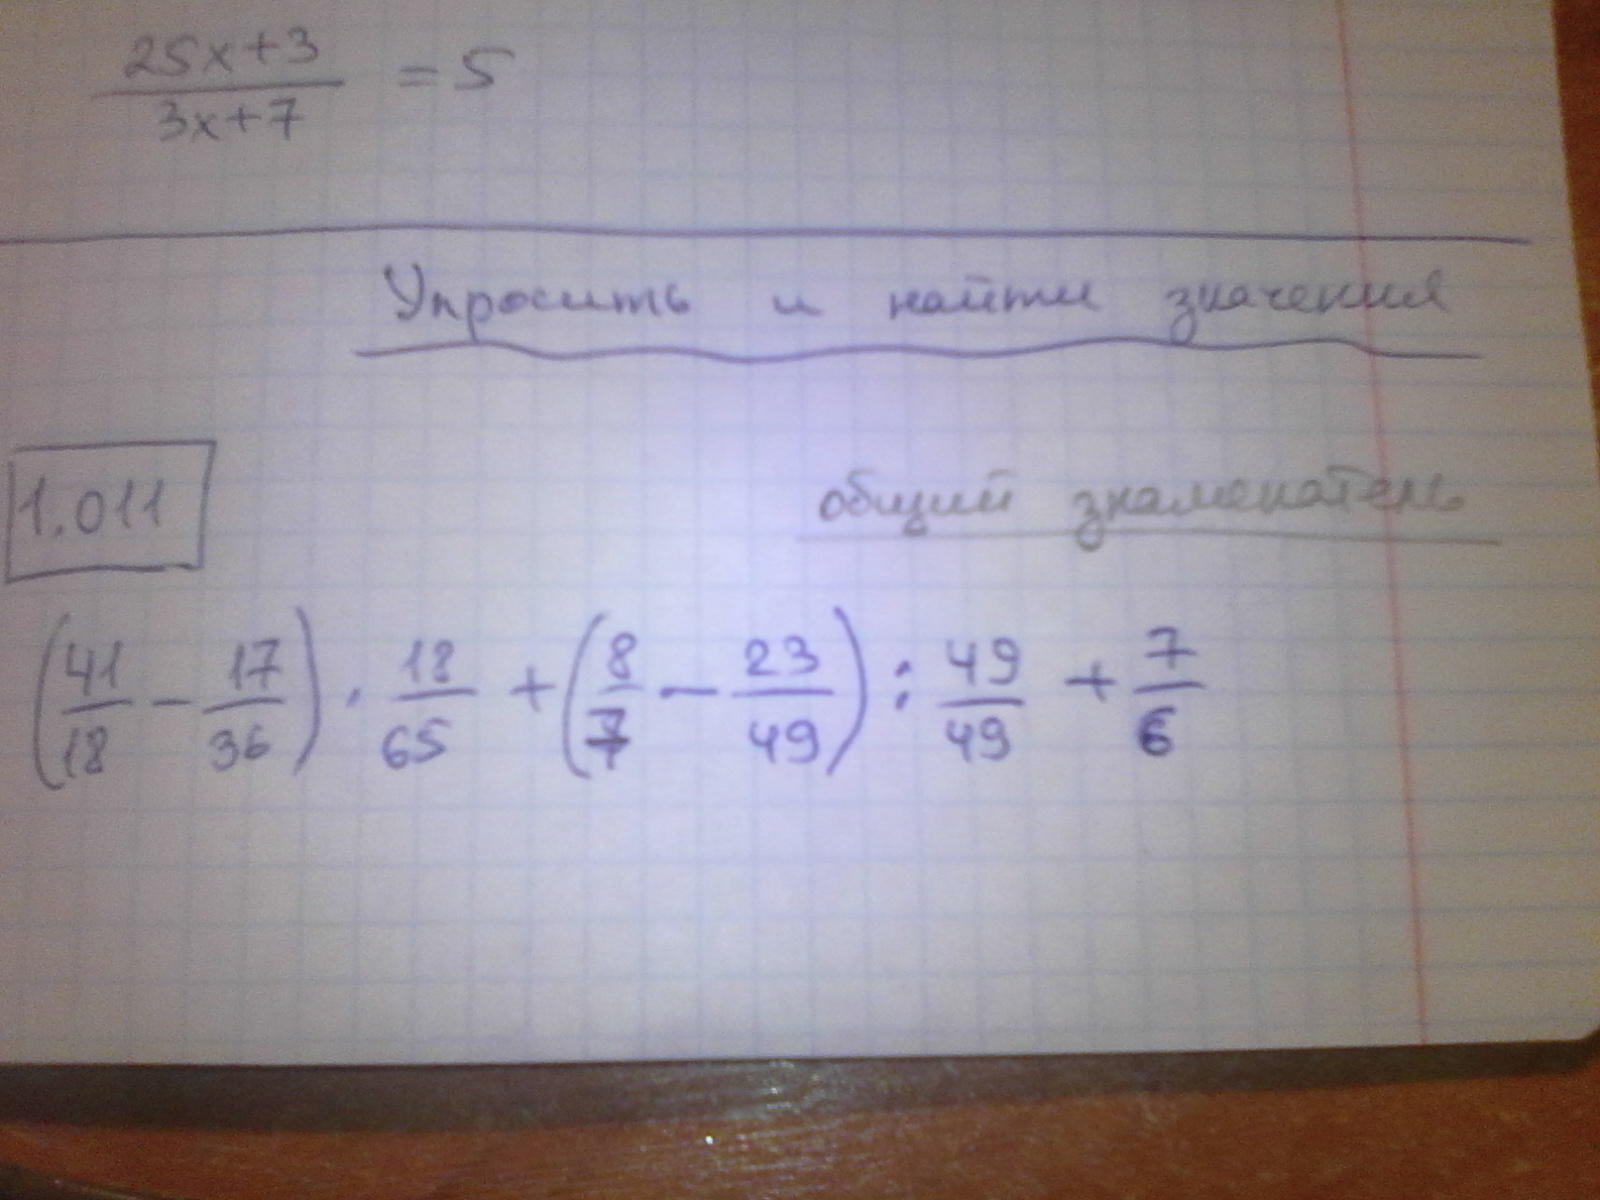 25x+3
3x+7
=5
Упросить и найти значения
1.011
общий знаменатель
(41/18 - 17/36) · 18/65 + (8/7 - 23/49) : 49/49 + 7/6